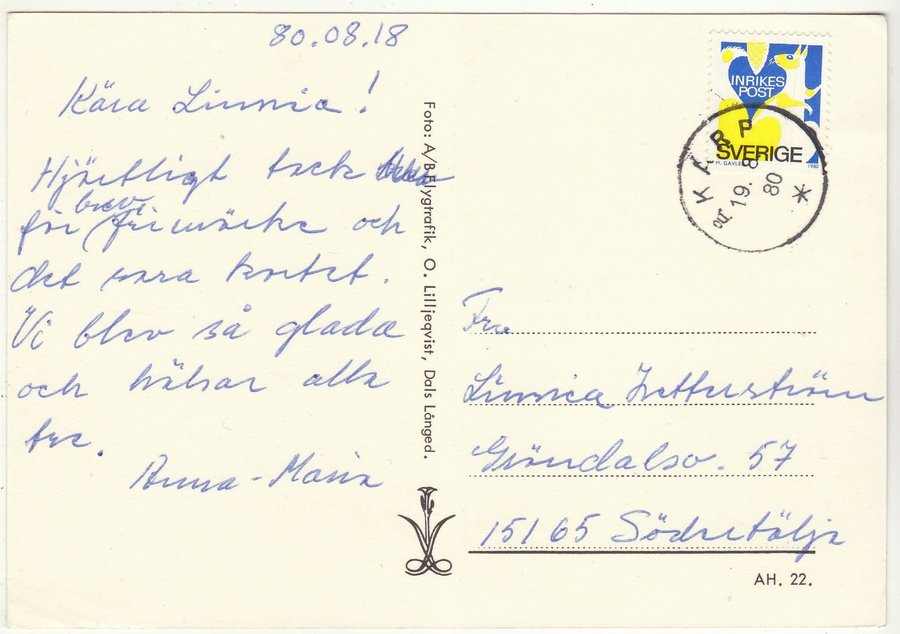 80.08.18
Kära Linnea!
Hjärtligt tack
för brev frimärke och
det rara kortet.
Vi blev så glada
och hälsar alla
tre.
Anna-Maria
Foto: A/B Flygtrafik, O. Lilljeqvist, Dals Långed.
INRIKES
POST
SVERIGE
M. GAVLER
1980
KARP
19. 8
80
Fru
Linnea Zetterström
Gröndalsv. 57
15165 Södertälje
AH. 22.